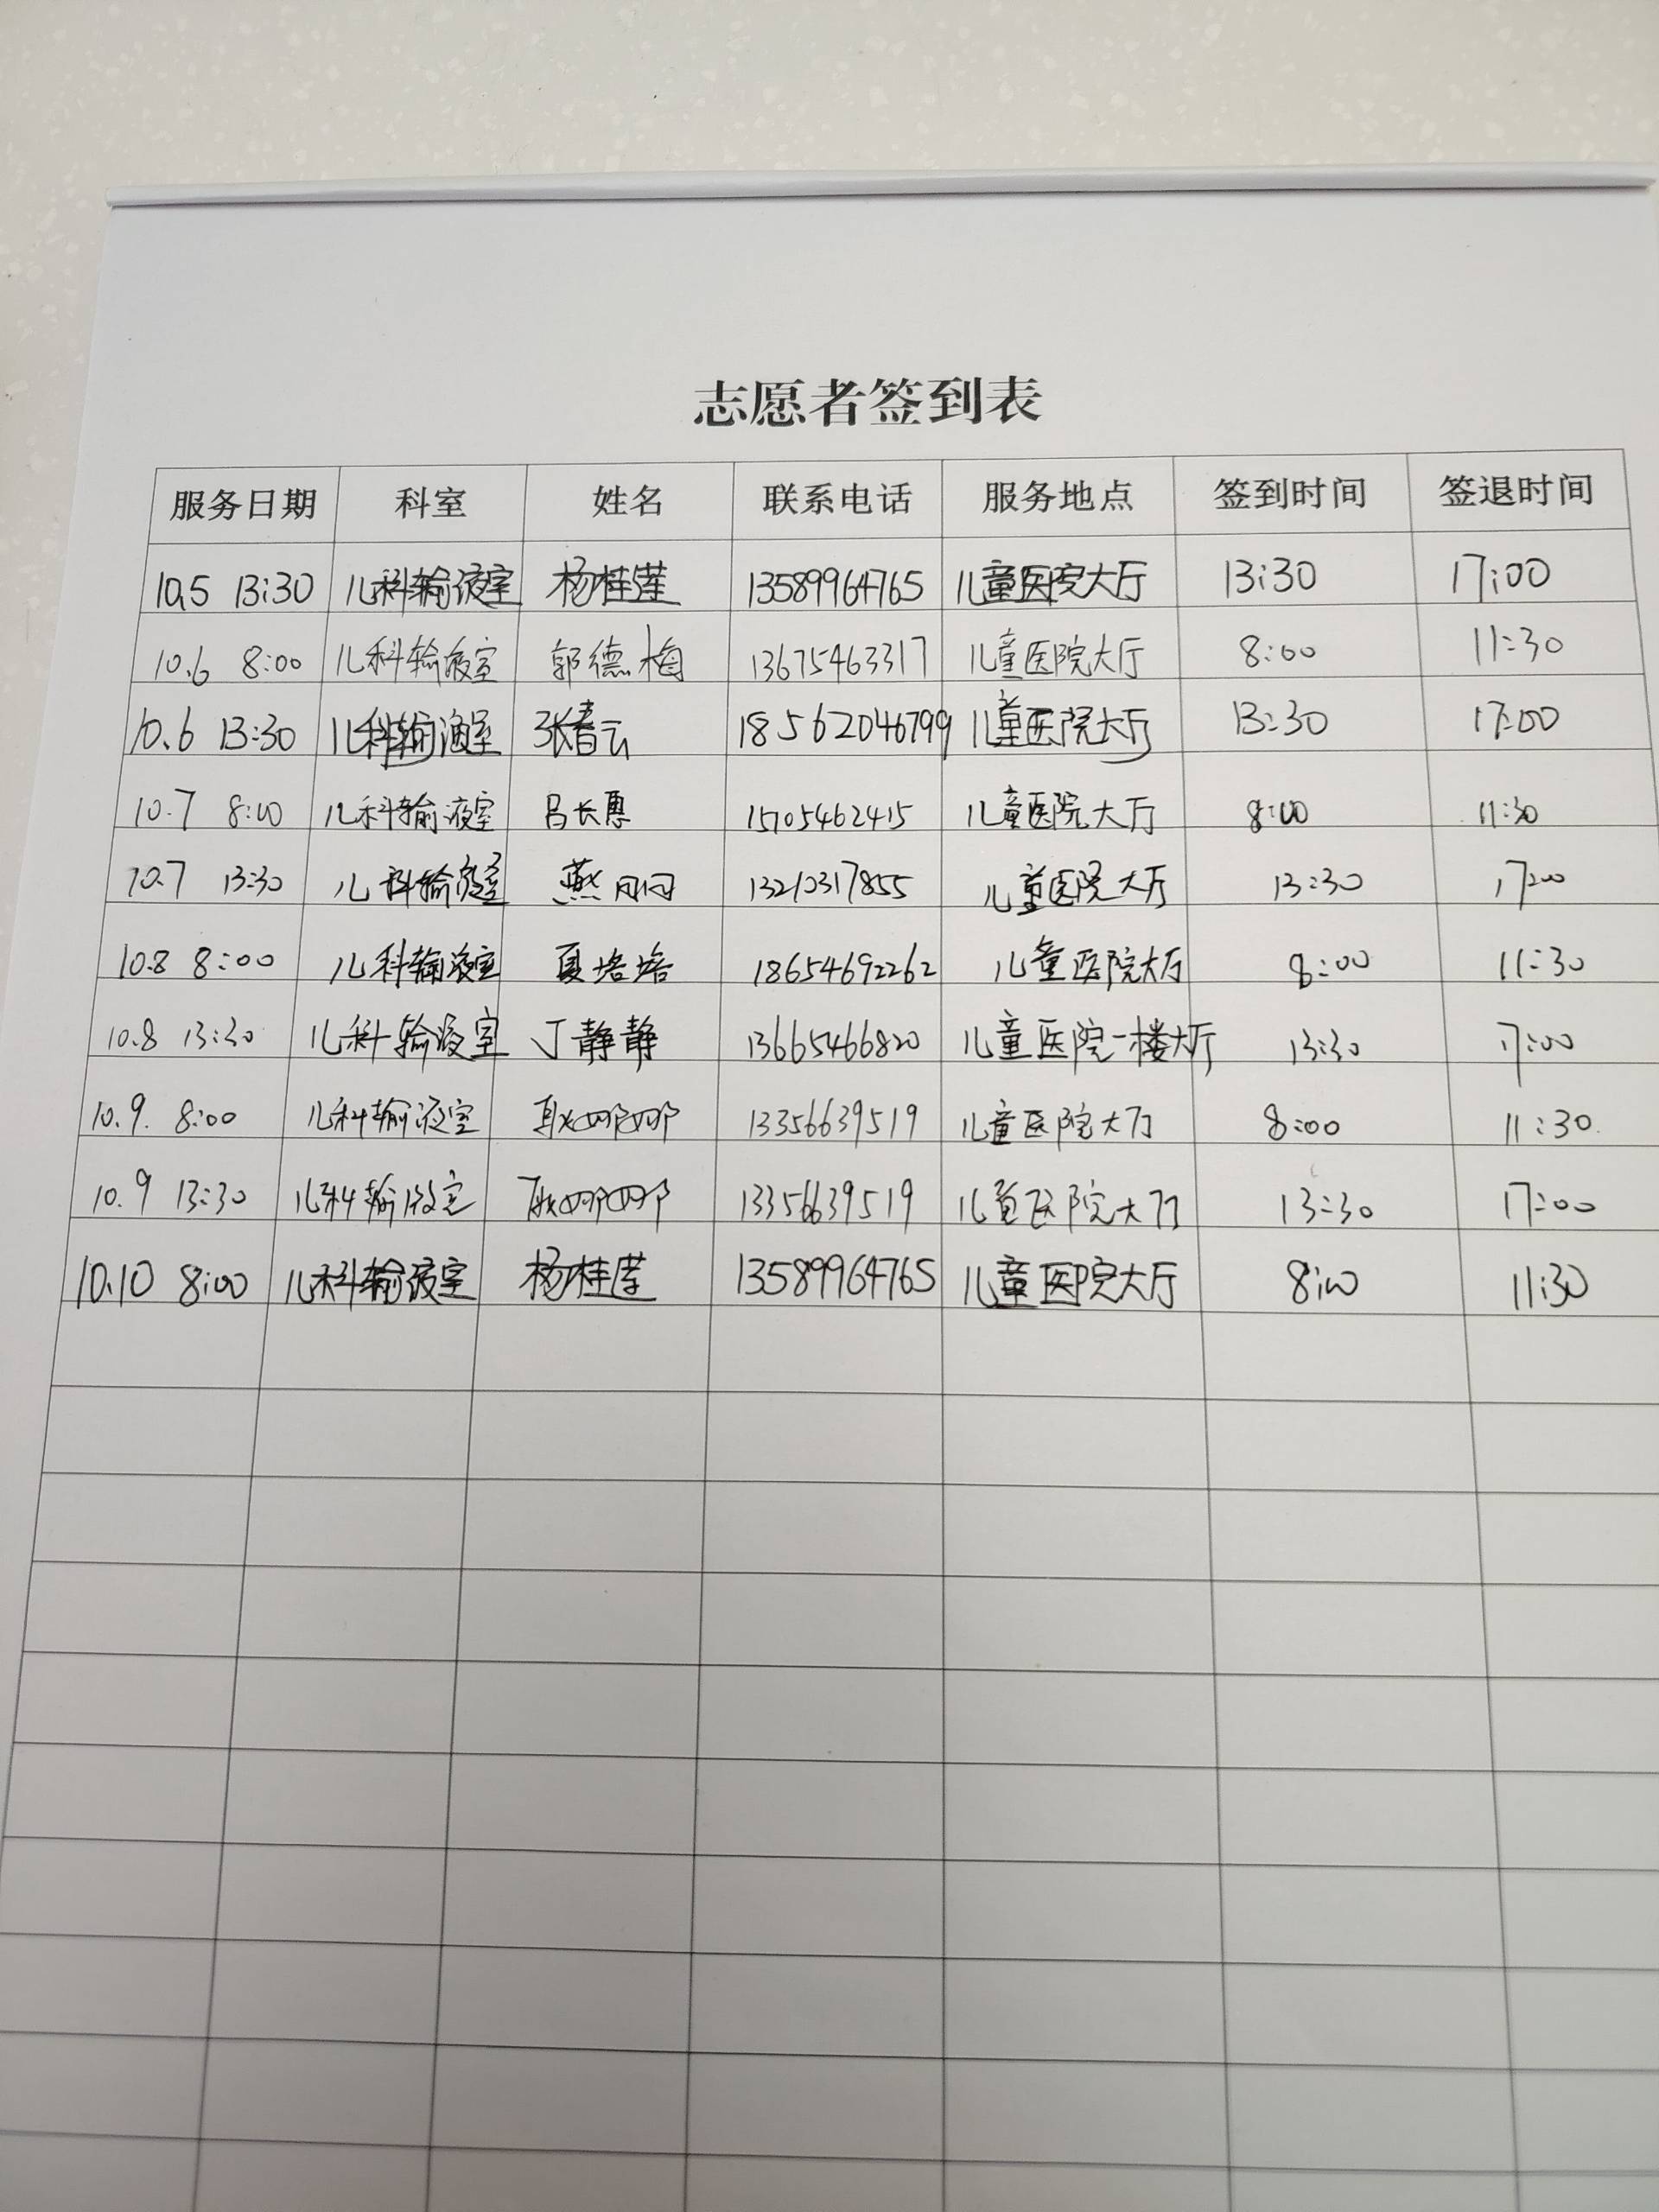 志愿者签到表
服务日期 科室 姓名 联系电话 服务地点 签到时间 签退时间
10.5 13:30 儿科输液室 杨桂莲 13589964765 儿童医院大厅 13:30 17:00
10.6 8:00 儿科输液室 郭德梅 13675463317 儿童医院大厅 8:00 11:30
10.6 13:30 儿科输液室 张春云 18562046799 儿童医院大厅 13:30 17:00
10.7 8:00 儿科输液室 吕长惠 15705462415 儿童医院大厅 8:00 11:30
10.7 13:30 儿科输液室 燕 13210317855 儿童医院大厅 13:30 17:00
10.8 8:00 儿科输液室 夏培培 18654692262 儿童医院大厅 8:00 11:30
10.8 13:30 儿科输液室 丁静静 13665466820 儿童医院一楼大厅 13:30 17:00
10.9. 8:00 儿科输液室 耿娜娜 13356639519 儿童医院大厅 8:00 11:30.
10.9 13:30 儿科输液室 耿娜娜 13356639519 儿童医院大厅 13:30 17:00
10.10 8:00 儿科输液室 杨桂莲 13589964765 儿童医院大厅 8:00 11:30